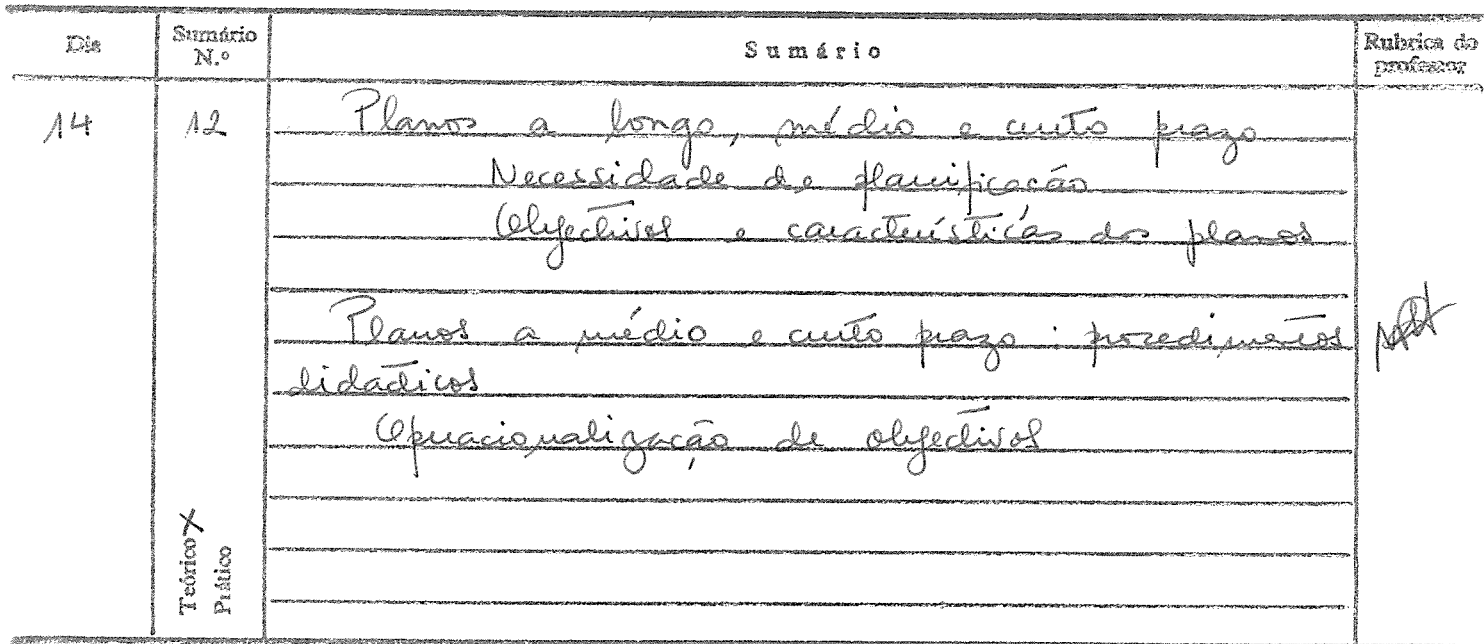 Dia
Sumário N.º
Sumário
Rubrica do professor
14
12
Planos a longo, médio e curto prazo
Necessidade de planificação
Objectivos e características dos planos
Planos a médio e curto prazo : procedimentos
didácticos
Operacionalização de objectivos
Teórico X
Prático